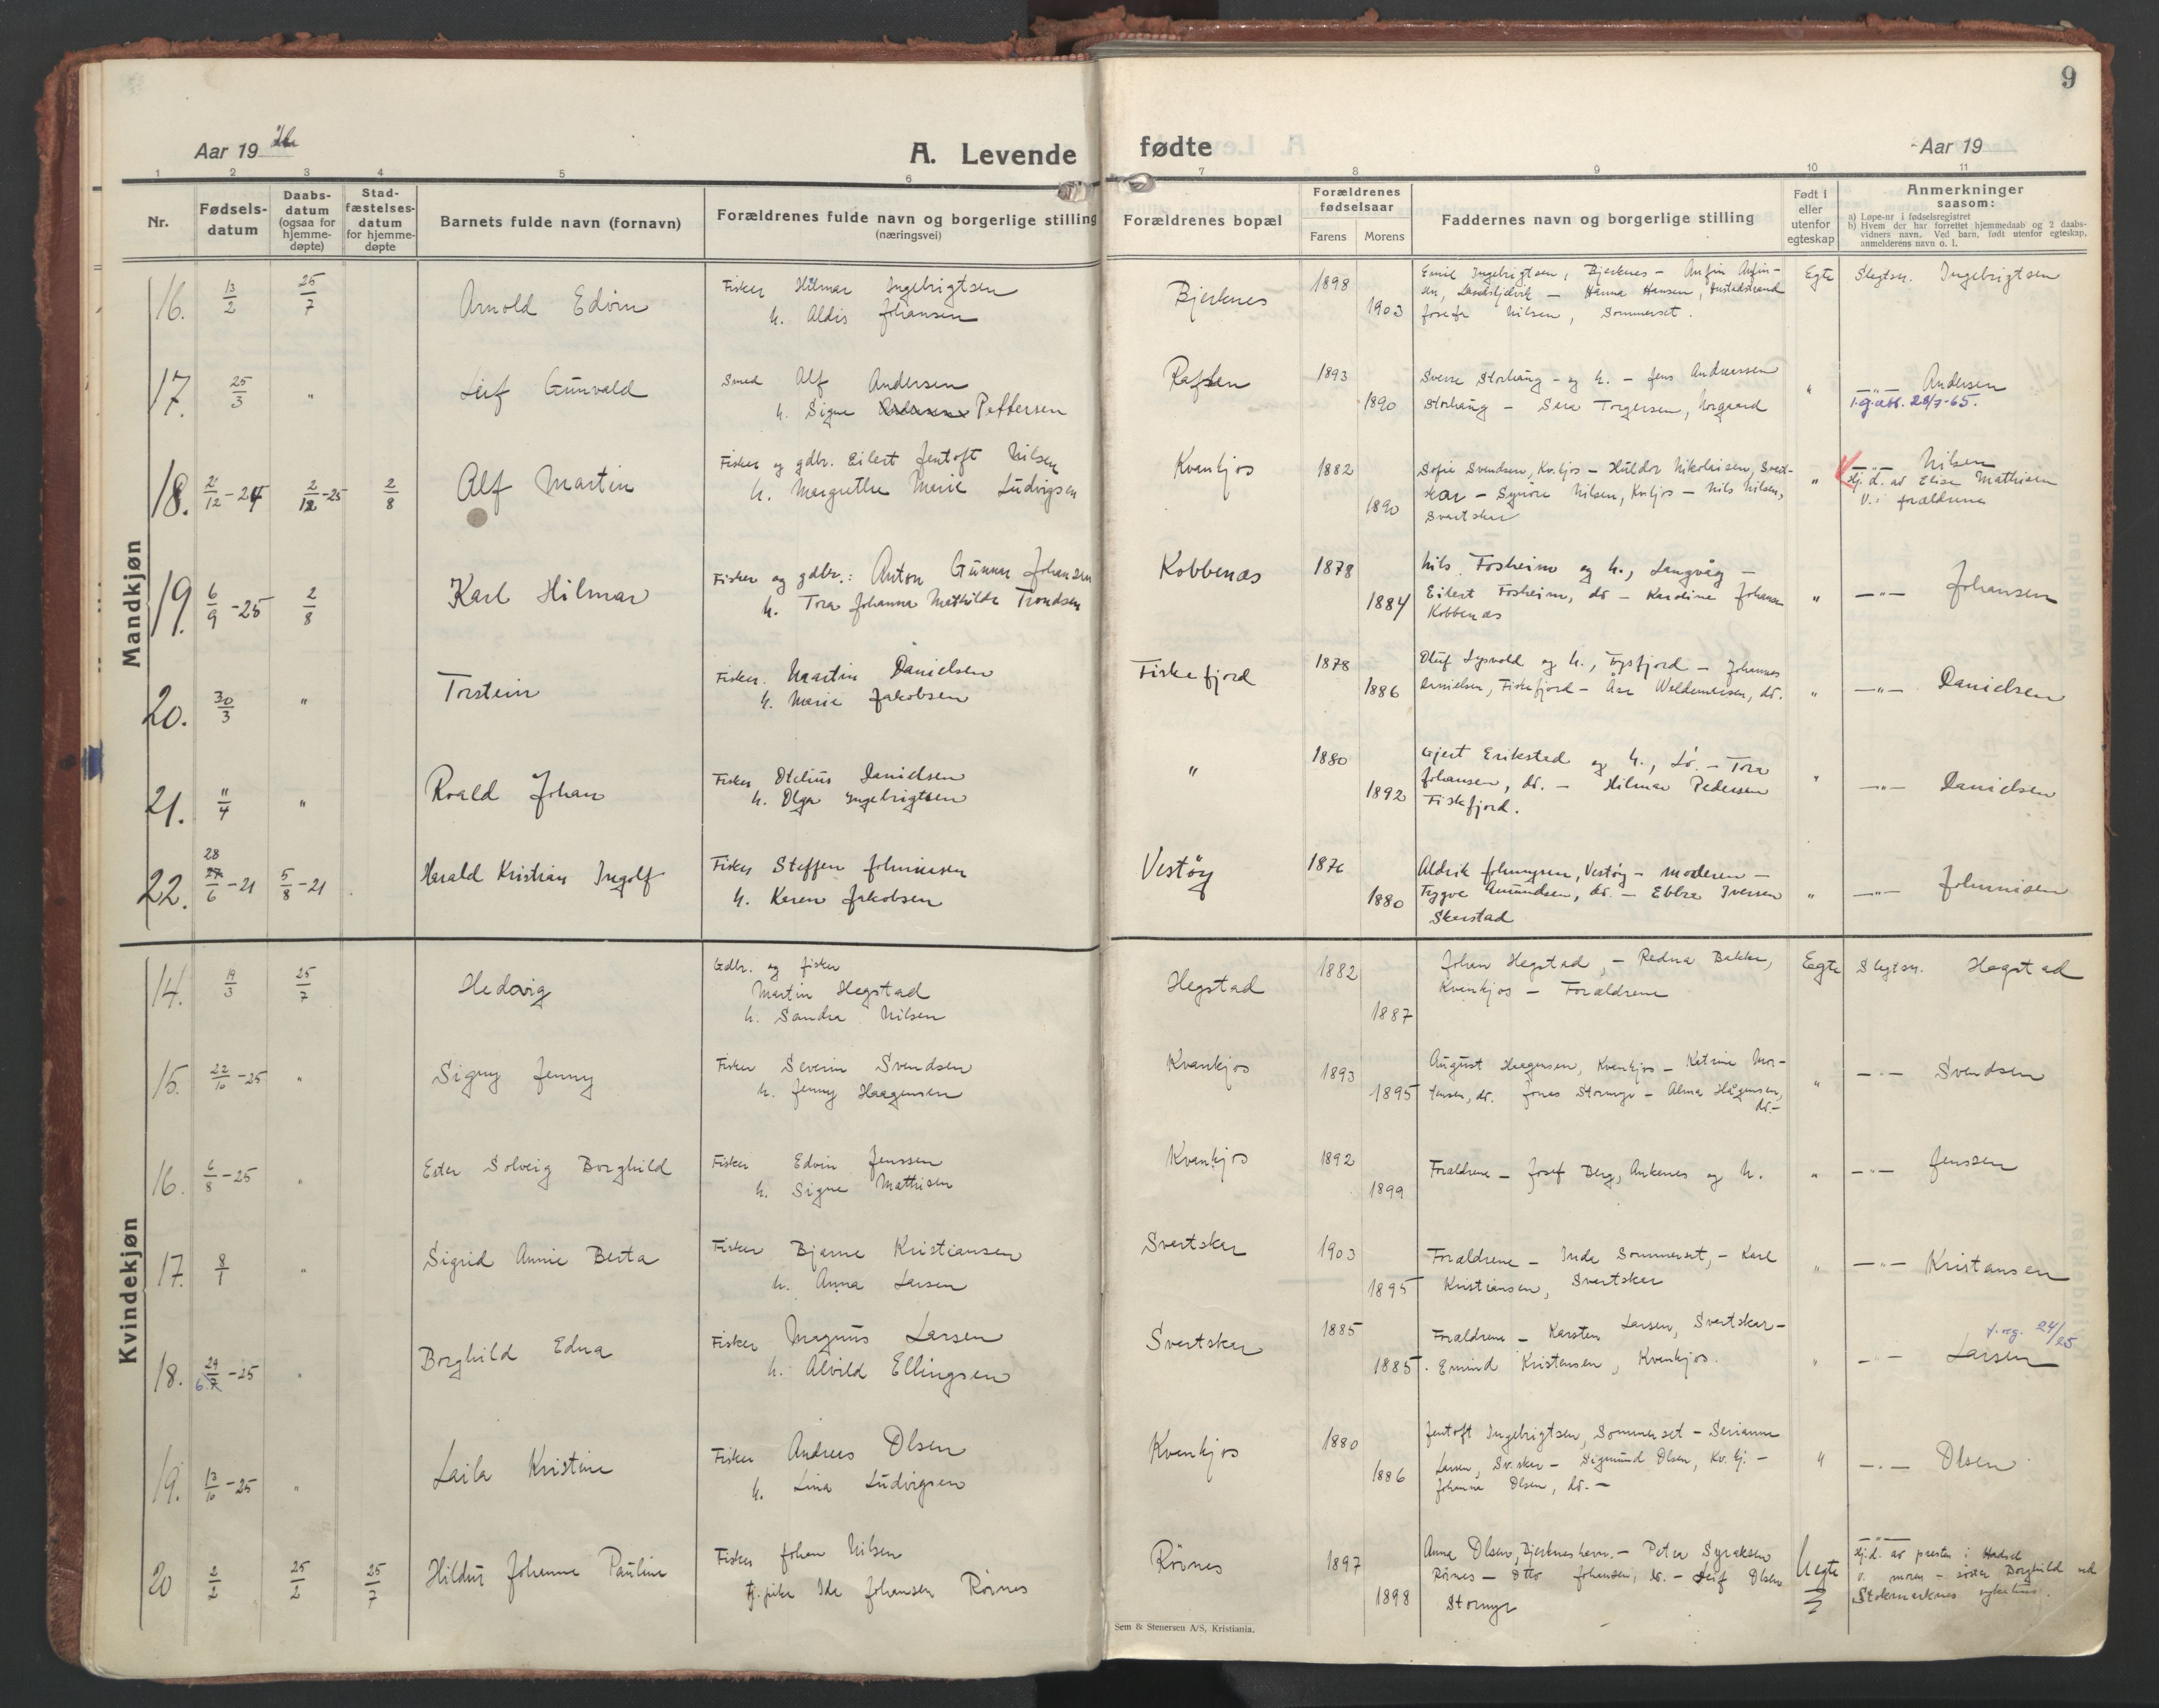 9
Aar 1926
A. Levende fødte
Aar 19
1 2 3 4 5 6 7 8 9 10 11
Nr.
Fødsels-
datum
Daabs-
datum
(ogsaa for
hjemme-
døpte)
Stad-
fæstelses-
datum
for hjemme-
døpte
Barnets fulde navn (fornavn)
Forældrenes fulde navn og borgerlige stilling
(næringsvei)
Forældrenes bopæl
Forældrenes
fødselsaar
Farens Morens
Faddernes navn og borgerlige stilling
Født i
eller
utenfor
egteskap
Anmerkninger
saasom:
a) Løpe-nr i fødselsregistret
b) Hvem der har forrettet hjemmedaab og 2 daabs-
vidners navn. Ved barn, født utenfor egteskap,
anmelderens navn o. l.
Mandkjøn
16. 13/2 25/7 Arnold Edvin
Fisker Hilmar Ingebrigtsen
h. Aldis Johansen
Bjerknes 1898 1903
Emil Ingebrigtsen, Bjerknes – Anfin Anfin-
sen, – Hanna Hansen,
Josefa Nilsen, Sommerset.
Egte Slegtsn. Ingebrigtsen
17. 25/3 " Leif Gunvald
Smed Alf Andersen
h. Signe Pettersen
Raftsen 1893 1890
Sverre Storhaug – og h. – Jens Andreassen
Storhaug – Sara Torgersen, Norgaard
" —"— Andersen
28/7-65.
18. 2/12-24 2/12-25 2/8 Alf Martin
Fisker og gdbr. Eilert Jentoft Nilsen
h. Margrethe Marie Ludvigsen
Kvankjos 1882 1890
Sofie Svendsen, Kv.kjos – Huldor Nikolaisen, Svart-
skar – Synøve Nilsen, Kv.kjos – Nils Nilsen,
Svartskar
" —"— Nilsen
Hj.d. av Elise Mathisen
V.: forældrene
19. 6/9-25 2/8 Karl Hilmar
Fisker og gdbr.: Anton Gunnar Johansen
h. Tora Johanna Mathilde Trondsen
Kobbenæs 1878 1884
Nils Fosheim og h., Langvåg –
Eilert Fosheim, do – Karoline Johansen
Kobbenæs
" —"— Johansen
20. 30/3 " Torstein
Fisker. Martin Danielsen
h. Marie Jakobsen
Fiskefjord 1878 1886
Oluf Lysvold og h., Tysfjord – Johannes
Danielsen, Fiskefjord – Åse Weldemarsen, do.
" —"— Danielsen
21. 11/4 " Roald Johan
Fisker Otelius Danielsen
h. Olga Ingebrigtsen
" 1880 1892
Gjert Erikstad og h., Lö. – Tora
Johansen, do. – Hilmar Pedersen
Fiskfjord.
" —"— Danielsen
22. 28 27/6-21 5/8-21 Harald Kristian Ingolf
Fisker Steffen Johnnisen
h. Karen Jakobsen
Vestøy 1876 1880
Aldrik Johnnysen, Vestøy – moderen –
Trygve Amundsen, do. – Ebba Iversen
Skarstad
" —"— Johnnisen
Kvindekjøn
14. 19/3 25/7 Hedvig
Gdbr. og fisker
Martin Hegstad
h. Sandra Nilsen
Hegstad 1882 1887
Johan Hegstad, – Redna Bakken,
Kvankjos – Forældrene
Eegte Slegtsn. Hegstad
15. 22/10-25 " Signy Jenny
Fisker Severin Svendsen
h. Jenny Haagensen
Kvankjos 1893 1895
August Haagensen, Kvankjos – Katrine Mor-
tensen, do. Jonas Stormyr – Alma Hågensen,
do.–
" —"— Svendsen
16. 6/8-25 " Ester Solveig Borghild
Fisker Edvin Jenssen
h. Signe Mathisen
Kvankjos 1892 1899
Forældrene – Josef Berg, Ankenes og h.
" —"— Jenssen
17. 8/1 " Sigrid Annie Berta
Fisker Bjarne Kristiansen
h. Anna Larsen
Svartskar 1903 1895
Forældrene – Inda Sommerset, – Karl
Kristiansen, Svartskar
" —"— Kristansen
18. 29/7-25 6 " Borghild Edna
Fisker Magnus Larsen
h. Alvild Ellingsen
Svartskar 1885 1885
Forældrene – Karsten Larsen, Svartskar –
Emund Kristensen, Kvankjos.
f. reg. 24/25
" —"— Larsen
19. 13/10-25 " Laila Kristine
Fisker Andreas Olsen
h. Lina Ludvigsen
Kvankjos 1880 1886
Jentoft Ingebrigtsen, Sommerset – Serianne
Larsen, Sv.skar – Sigmund Olsen, Kv.kj. –
Johanna Olsen, do. –
" —"— Olsen
20 2/2 25/2 25/7 Hildur Johanne Pauline
Fisker Johan Nilsen
Tj.pike Ida Johansen Rörnes
Rörnes 1897 1898
Anna Olsen, Bjerkneshavn. – Peter Syraksen
Rörnes – Otto Johansen, do. – Leif Olsen
Stormyr
Uegte —"—
Hj.d. av presten i Hadsel
v. moren – søster Borghild ved
Stokmarknes sykehus.
Sem & Stenersen A/S, Kristiania.